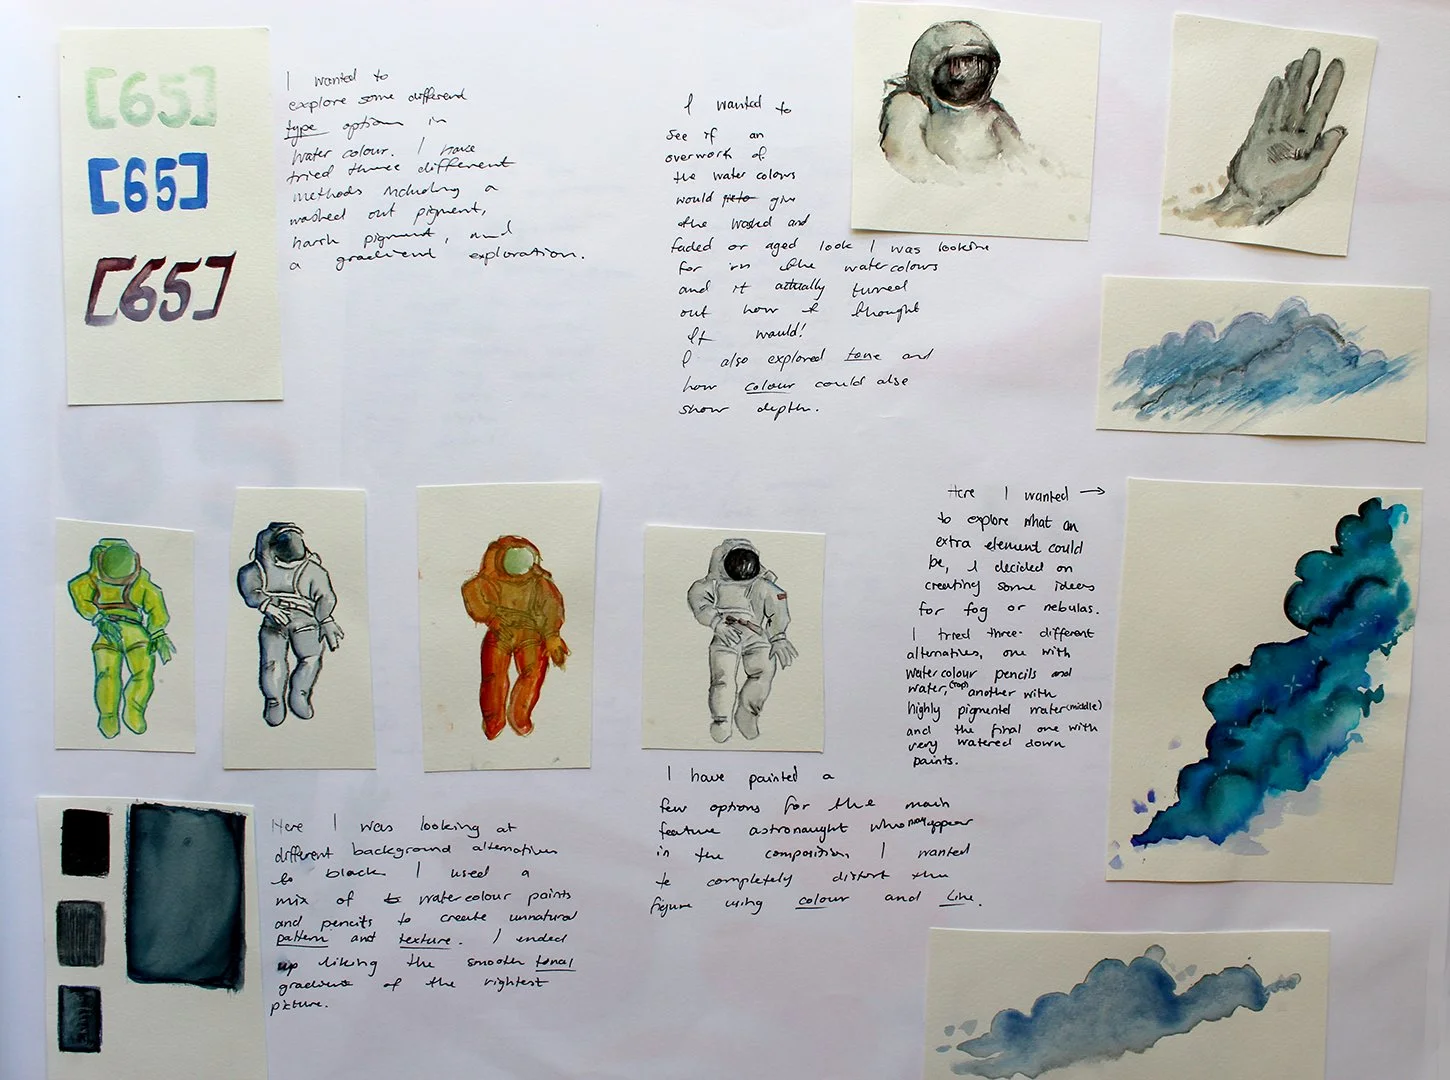 [65]
[65]
[65]
I wanted to
explore some different
type options in
water colour. I have
tried three different
methods including a
washed out pigment,
harsh pigment, and
a gradient exploration.
I wanted to
see if an
overwork of
the water colours
would give
the washed and
faded or aged look I was looking
for in the watercolours
and it actually turned
out how I thought
it would!
I also explored tone and
how colour could also
show depth.
Here I wanted →
to explore what an
extra element could
be, I decided on
creating some ideas
for fog or nebulas.
I tried three different
alternatives, one with
watercolour pencils and
water, (top) another with
highly pigmented water (middle)
and the final one with
very watered down
paints.
Here I was looking at
different background alternatives
to black I used a
mix of watercolour paints
and pencils to create unnatural
pattern and texture. I ended
up liking the smooth tonal
gradient of the rightest
picture.
I have painted a
few options for the main
feature astronaught who may appear
in the composition I wanted
to completely distort the
figure using colour and line.